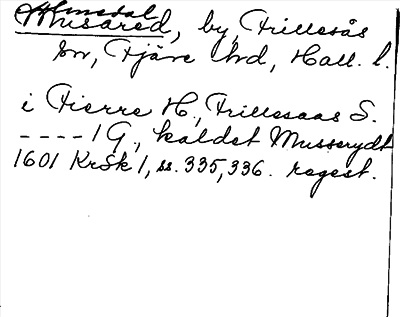 Musared, by, Frillesås
sn, Fjäre hrd, Hall. l.
i Fierre H., Frillesaas S.
---- 1 G., kaldet Musserydt
1601 KrSk 1, ss. 335, 336. regest.